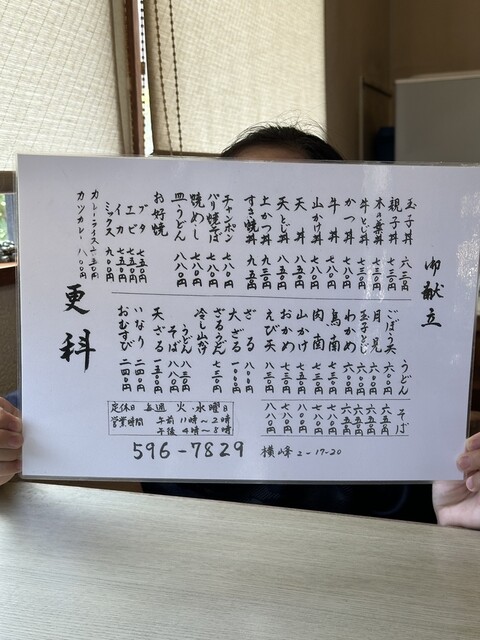 御献立
玉子丼 六三〇円
親子丼 七三〇円
木の葉丼 六三〇円
牛とじ丼 七三〇円
かつ丼 七八〇円
牛丼 七八〇円
山かけ丼 七八〇円
天丼 八五〇円
天とじ丼 八五〇円
上かつ丼 九三〇円
すき焼丼 九五〇円
チャンポン 七八〇円
バリ焼そば 七八〇円
焼めし 七八〇円
皿うどん 八八〇円
お好焼
ブタ 七五〇円
エビ 七五〇円
イカ 七五〇円
ミックス 九〇〇円
カレーライス 七五〇円
カツカレー 八〇〇円
うどん そば
ごぼう天 六〇〇円 六五〇円
月見 六〇〇円 六五〇円
玉子とじ 六〇〇円 六五〇円
わかめ 六〇〇円 六五〇円
鳥南 七三〇円 七八〇円
肉南 七三〇円 七八〇円
山かけ
おかめ
えび天 八三〇円 八八〇円
ざる
大ざる
ざるうどん 七三〇円
冷し山かけ
うどん 八三〇円
そば 八八〇円
天ざる 一五〇〇円
いなり
おむすび 二四〇円
更科
定休日 毎週 火・水曜日
営業時間 午前 11時〜2時
午後 4時〜8時
596-7829 横峰2-17-20